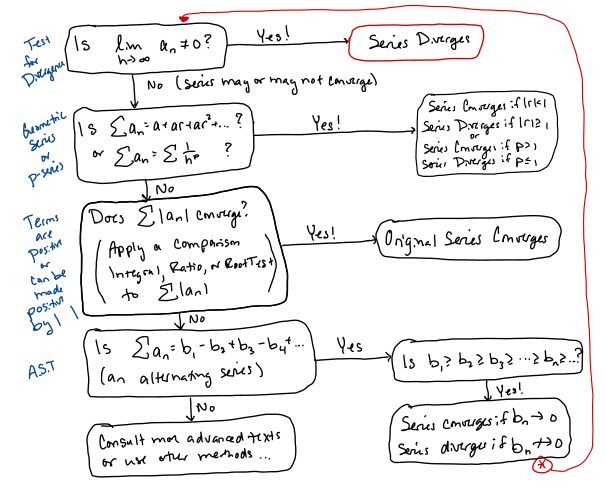 Test
for
Divergence
Is lim n→∞ aₙ ≠ 0?
Yes!
Series Diverges
No (series may or may not converge)
Geometric
Series
or
p-series
Is ∑aₙ = a + ar + ar² + ... ?
or ∑aₙ = ∑ 1/nᵖ ?
Yes!
Series Converges if |r|<1
Series Diverges if |r|≥1
or
Series Converges if p>1
Series Diverges if p≤1
No
Terms
are
positive
or
can be
made
positive
by | |
Does ∑|aₙ| converge?
(Apply a Comparison
Integral, Ratio, or Root Test
to ∑|aₙ|)
Yes!
Original Series Converges
No
A.S.T
Is ∑aₙ = b₁ - b₂ + b₃ - b₄ + ...
(an alternating series)
Yes
Is b₁ ≥ b₂ ≥ b₃ ≥ ... ≥ bₙ ≥ ...?
Yes!
Series converges if bₙ → 0
Series diverges if bₙ ↛ 0
*
No
Consult more advanced texts
or use other methods ...